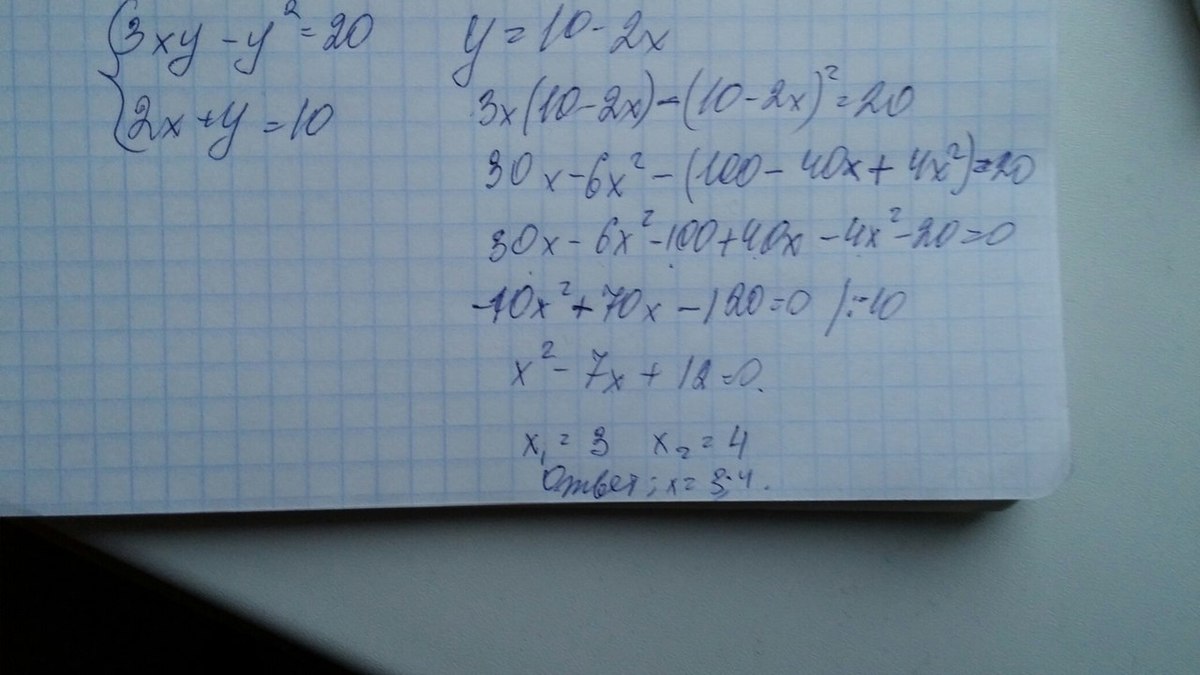 {3xy - y² = 20
{2x + y = 10
y = 10 - 2x
3x(10 - 2x) - (10 - 2x)² = 20
30x - 6x² - (100 - 40x + 4x²) = 20
30x - 6x² - 100 + 40x - 4x² - 20 = 0
-10x² + 70x - 120 = 0 /:-10
x² - 7x + 12 = 0.
x₁ = 3 x₂ = 4
Ответ: x = 3; 4.